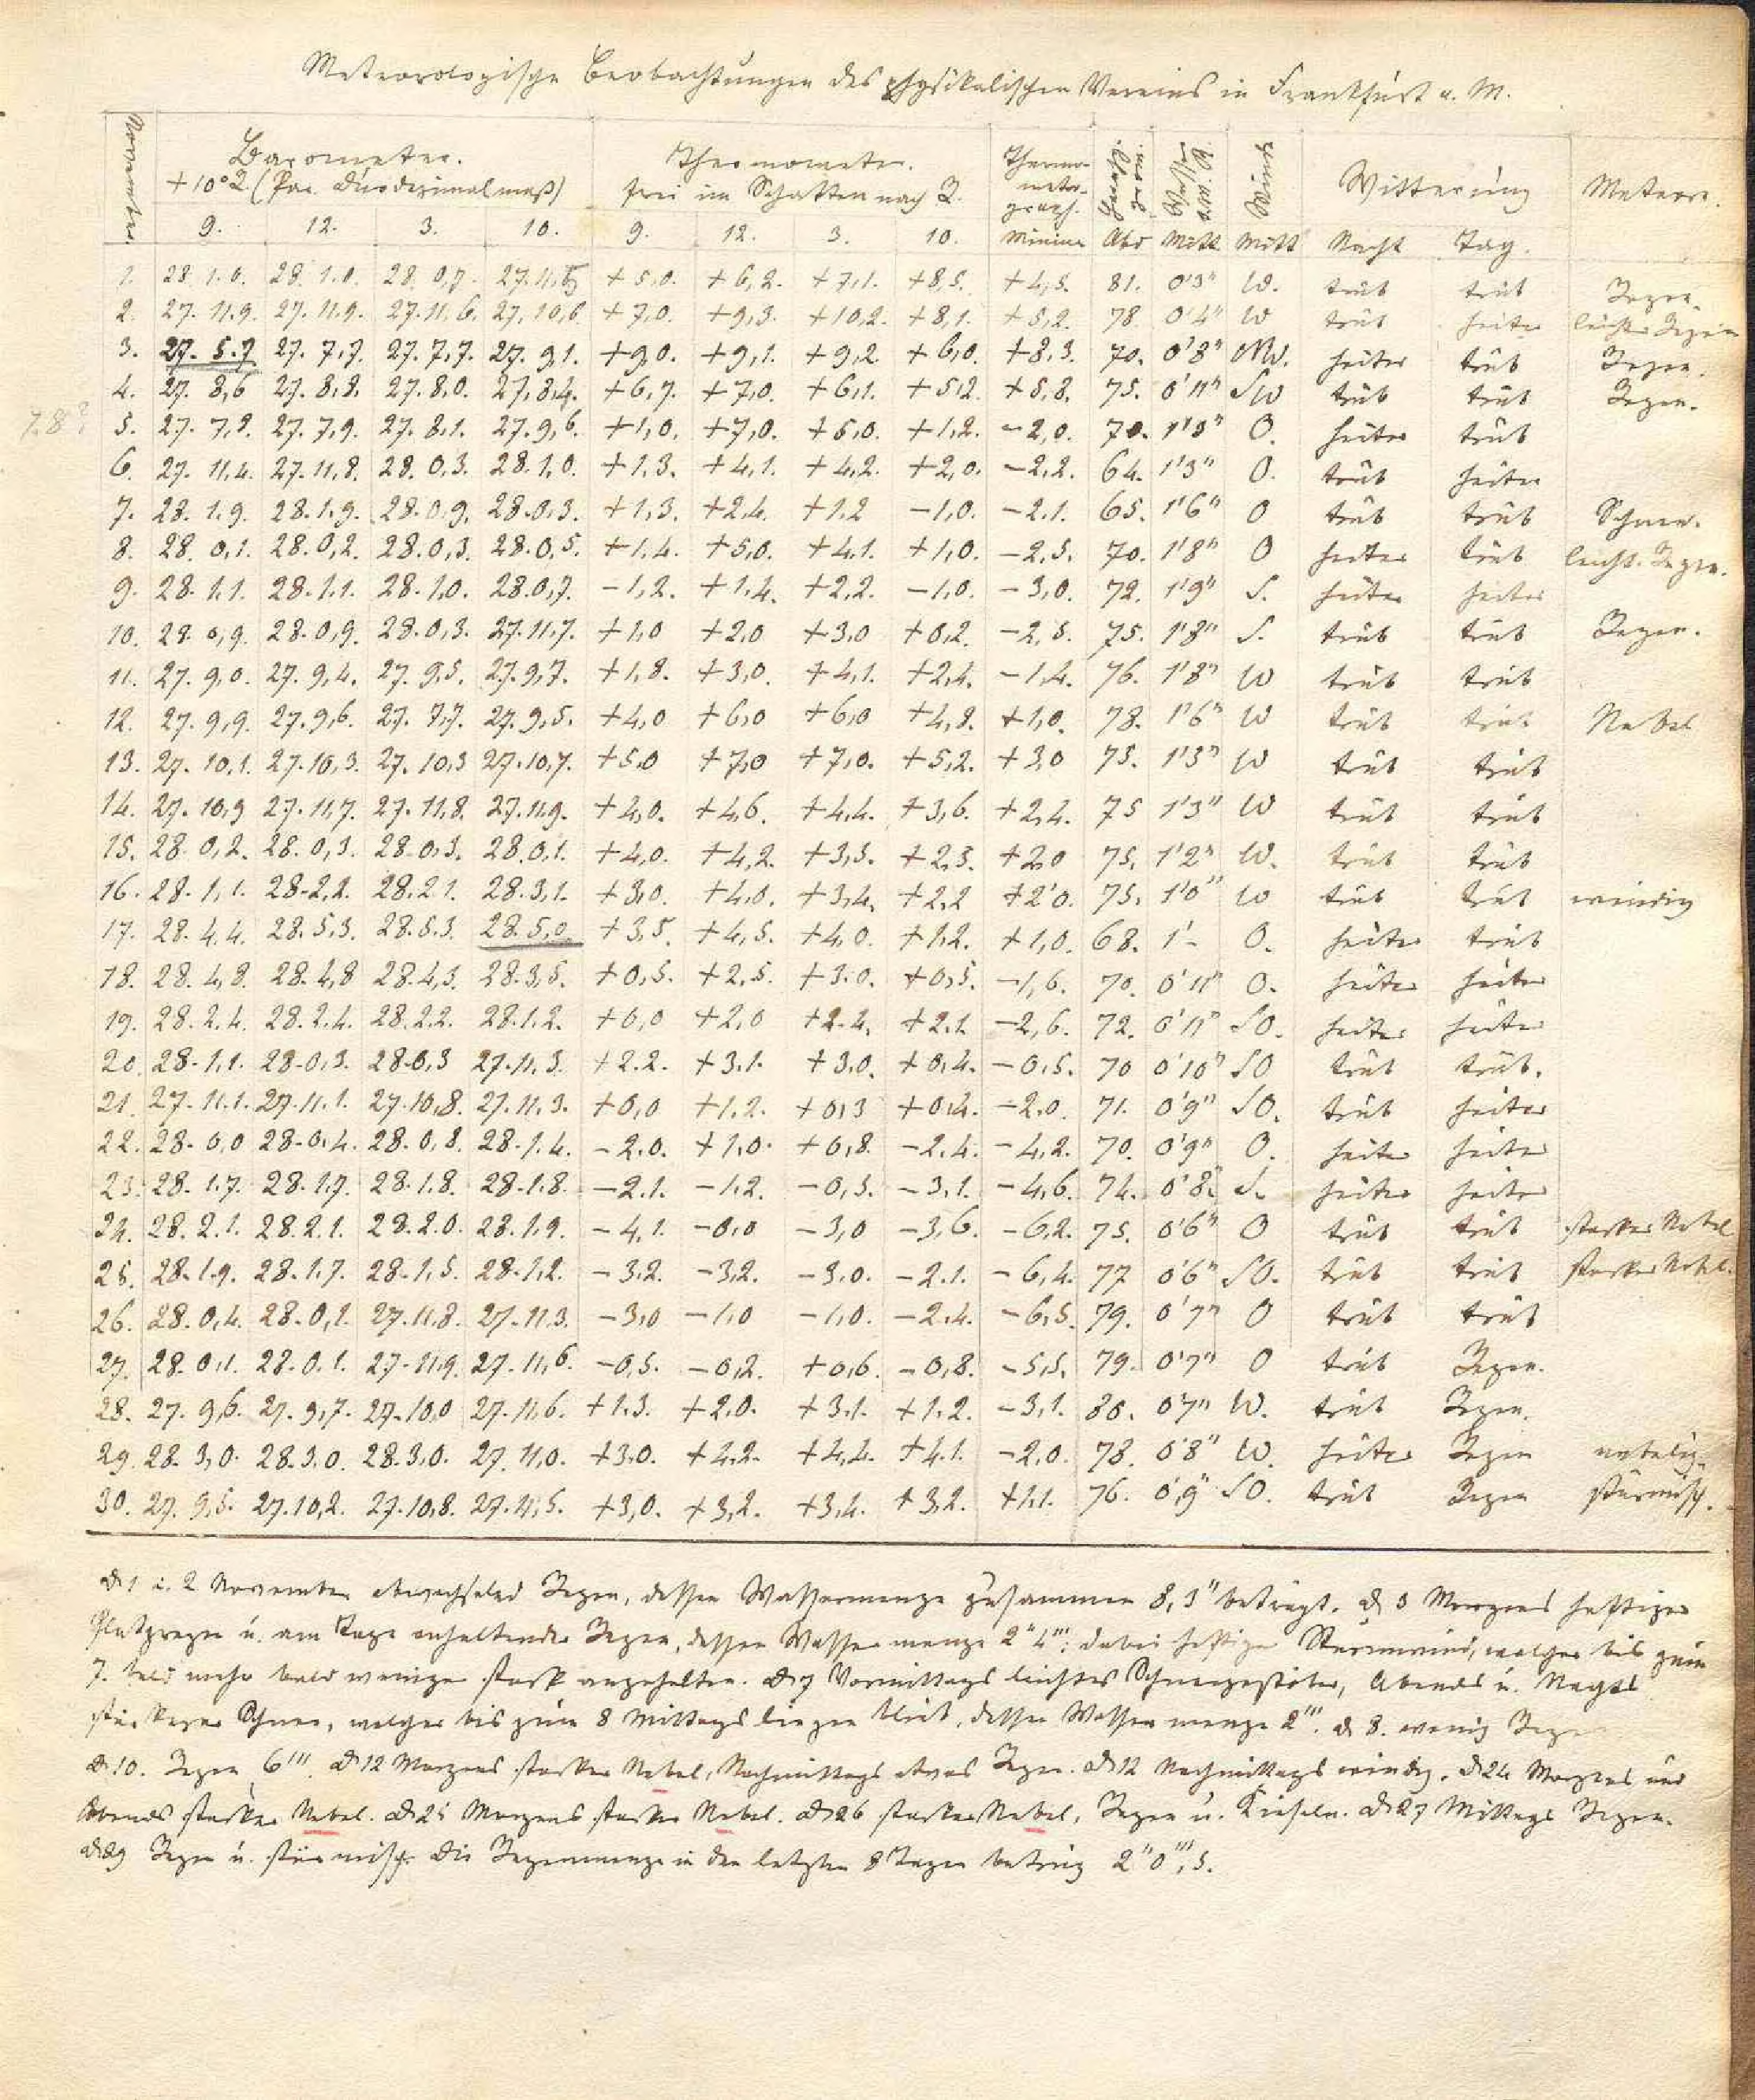 Meteorologische Beobachtungen des physikalischen Vereins in Frankfurt a. M.
November. Barometer. Thermometer. Thermo- Wind Witterung Meteore.
+10° R (Par. Duodezimalmaß) frei im Schatten nach R. metro-
graph.
9. 12. 3. 10. 9. 12. 3. 10. Minim Abs Mitt Mitt Nacht Tag.
1. 28. 1.0. 28. 1.0. 28. 0,7. 27.11,5 +5,0. +6,2. +7,1. +8,5. +4,5. 81. 0'3" W. trüb trüb Regen.
2. 27. 11.9. 27. 11.9. 27. 11,6. 27. 10,6 +7,0. +9,3. +10,2. +8,1. +5,2. 78. 0'4" W trüb heiter leichter Regen
3. 27. 5.7 27. 7,7. 27. 7,7. 27. 9,1. +9,0. +9,1. +9,2 +6,0. +8,3. 70. 0'8" NW. heiter trüb Regen.
4. 27. 8,6 27. 8,8. 27. 8.0. 27. 8,4. +6,7. +7,0. +6,1. +5,2. +5,8. 75. 0'11" SW trüb trüb Regen.
7.8?
5. 27. 7,2. 27. 7,9. 27. 8,1. 27. 9,6. +1,0. +7,0. +5,0. +1,2. -2,0. 70. 1'3" O. heiter trüb
6. 27. 11,4. 27. 11,8. 28. 0,3. 28. 1,0. +1,3. +4,1. +4,2. +2,0. -2,2. 64. 1'3" O. trüb heiter
7. 28. 1.9. 28. 1.9. 28. 0,9. 28. 0,3. +1,3. +2,4. +1,2 -1,0. -2,1. 65. 1'6" O trüb trüb Schnee.
8. 28. 0,1. 28. 0,2. 28. 0,3. 28. 0,5. +1,4. +5,0. +4,1. +1,0. -2,5. 70. 1'8" O heiter trüb leicht. Regen.
9. 28. 1.1. 28. 1.1. 28. 1,0. 28. 0,7. -1,2. +1,4. +2,2. -1,0. -3,0. 72. 1'9" S. heiter heiter
10. 28. 0,9. 28. 0,9. 28. 0,3. 27. 11,7. +1,0 +2,0 +3,0 +0,2. -2,5. 75. 1'8" S. trüb trüb Regen.
11. 27. 9,0. 27. 9,4. 27. 9,5. 27. 9,7. +1,8. +3,0. +4,1. +2,4. -1,4. 76. 1'8" W trüb trüb
12. 27. 9,9. 27. 9,6. 27. 7,7. 27. 9,5. +4,0 +6,0 +6,0 +4,8. +1,0. 78. 1'6" W trüb trüb Nebel
13. 27. 10,1. 27. 10,3. 27. 10,3 27. 10,7. +5,0 +7,0 +7,0. +5,2. +3,0 75. 1'3" W trüb trüb
14. 27. 10,9 27. 11,7. 27. 11,8. 27. 11,9. +4,0. +4,6. +4,4. +3,6. +2,4. 75 1'3" W trüb trüb
15. 28. 0,2. 28. 0,3. 28. 0,3. 28. 0,1. +4,0. +4,2. +3,3. +2,3. +2,0 75. 1'2" W. trüb trüb
16. 28. 1,1. 28. 2,2. 28. 2,1. 28. 3,1. +3,0. +4,0. +3,4. +2,2 +2,0. 75. 1'0" W trüb trüb windig
17. 28. 4.4. 28. 5,3. 28. 5.3. 28. 5,0. +3,5. +4,5. +4,0. +1,2. +1,0. 68. 1'- O. heiter trüb
18. 28. 4,8. 28. 4,8 28. 4,3. 28. 3,5. +0,5. +2,5. +3.0. +0,5. -1,6. 70. 0'11" O. heiter heiter
19. 28. 2.4. 28. 2.4. 28. 2.2. 28. 1.2. +0,0 +2,0 +2.4. +2.1. -2,6. 72. 0'11" SO. heiter heiter
20. 28. 1,1. 28. 0,3. 28. 0,3 27. 11,3. +2.2. +3.1. +3,0. +0,4. -0,5. 70 0'10" SO trüb trüb.
21. 27. 11.1. 27. 11.1. 27. 10,8. 27. 11,3. +0,0 +1,2. +0,3 +0,4. -2,0. 71. 0'9" SO. trüb heiter
22. 28. 0,0 28. 0,4. 28. 0,8. 28. 1,4. -2,0. +1,0. +0,8. -2,4. -4,2. 70. 0'9" O. heiter heiter
23. 28. 1.7. 28. 1.7. 28. 1.8. 28. 1.8. -2.1. -1.2. -0,3. -3,1. -4,6. 74. 0'8" S. heiter heiter
24. 28. 2.1. 28. 2.1. 28. 2.0. 28. 1.9. -4,1. -0,0 -3,0 -3,6. -6,2. 75. 0'6" O trüb trüb starker Nebel
25. 28. 1.9. 28. 1.7. 28. 1,5. 28. 1,2. -3,2. -3,2. -3,0. -2,1. -6,4. 77 0'6" SO. trüb trüb starker Nebel.
26. 28. 0,4. 28. 0,1. 27. 11,8. 27. 11.3. -3,0 -1,0 -1,0. -2,4. -6,5. 79. 0'7" O trüb trüb
27. 28. 0,1. 28. 0.1. 27. 11,9. 27. 11,6. -0,5. -0,2. +0,6. -0,8. -5,5. 79. 0'7" O trüb Regen.
28. 27. 9,6. 27. 9,7. 27. 10,0 27. 11,6. +1.3. +2,0. +3,1. +1,2. -3,1. 80. 0'7" W. trüb Regen.
29. 28. 3,0. 28. 3.0. 28. 3,0. 27. 11,0. +3,0. +4,2. +4,4. +4.1. -2,0. 78. 0'8" W. heiter Regen nebelig.
30. 27. 9,5. 27. 10,2. 27. 10,8. 27. 11,5. +3,0. +3,2. +3,4. +3,2. +1,1. 76. 0'9" SO. trüb Regen stürmisch.
D 1 u. 2 November abwechselnd Regen, dessen Wassermenge zusammen 8,3" beträgt. D 3 Morgens heftiger
Platzregen u. am Tage anhaltender Regen, dessen Wassermenge 2" 4"'; dabei heftiger Sturmwind, welcher bis zum
7. bald mehr bald weniger stark angehalten. D 7 Vormittags leichtes Schneegestöber, Abends u. Nachts
stärkerer Schnee, welcher bis zum 8 Mittags liegen blieb, dessen Wassermenge 2"'. D 8. wenig Regen
D 10. Regen 6"'. D 12 Morgens starker Nebel, Nachmittags etwas Regen. D 12 Nachmittags windig. D 24 Morgens und
Abends starker Nebel. D 25 Morgens starker Nebel. D 26 starker Nebel, Regen u. Kieseln. D 27 Mittags Regen.
D 29 Regen u. stürmisch. Die Regenmenge in den letzten 8 Tagen betrug 2" 0"', 5.